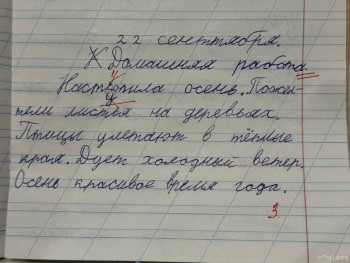 22 сентября.
Домашняя работа
Наступила осень. Пожел-
тели листья на деревьях.
Птицы улетают в тёплые
края. Дует холодный ветер.
Осень красивое время года.
3.